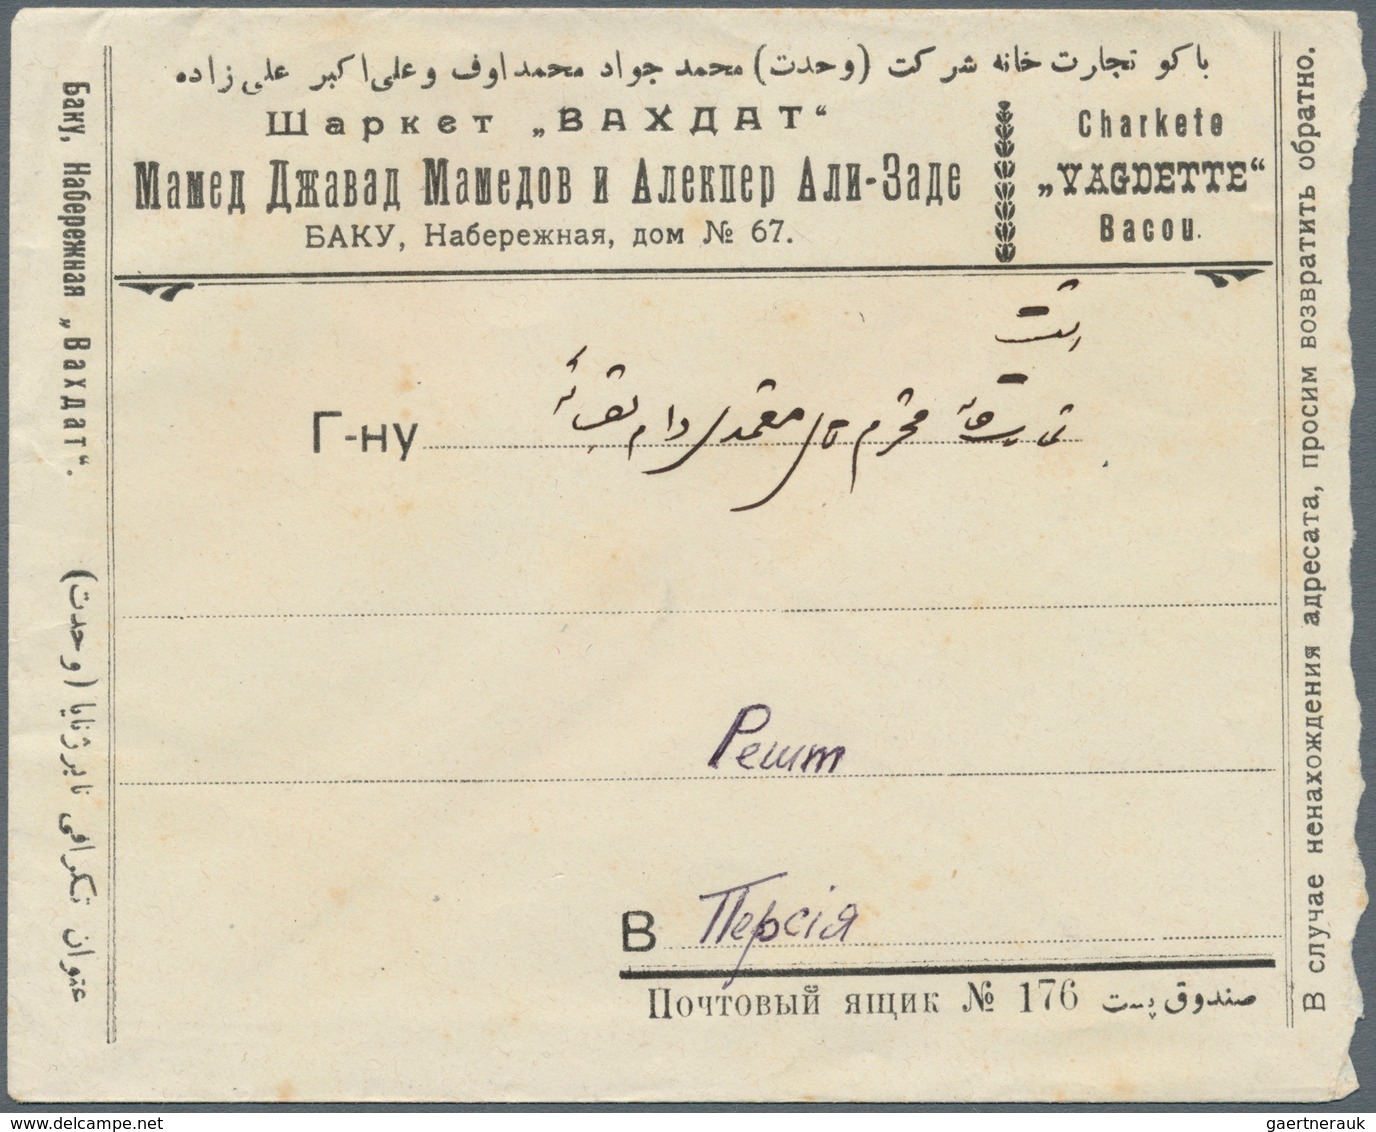 باکو تجارت خانه شرکت (وحدت) محمد جواد محمداوف و علی اکبر علی زاده
Шаркет „ВАХДАТ“
Мамед Джавад Мамедов и Алекпер Али-Заде
БАКУ, Набережная, дом № 67.
Charkete
„VAGDETTE“
Bacou.
Баку, Набережная „Вахдат“.
عنوان تلگرافی نابرژنایا (وحدت)
В случае ненахождения адресата, просим возвратить обратно.
رشت
Г-ну
محترم
Решт
В Персія
Почтовый ящик № 176 صندوق پست
delcampe.net
gaertnerauk